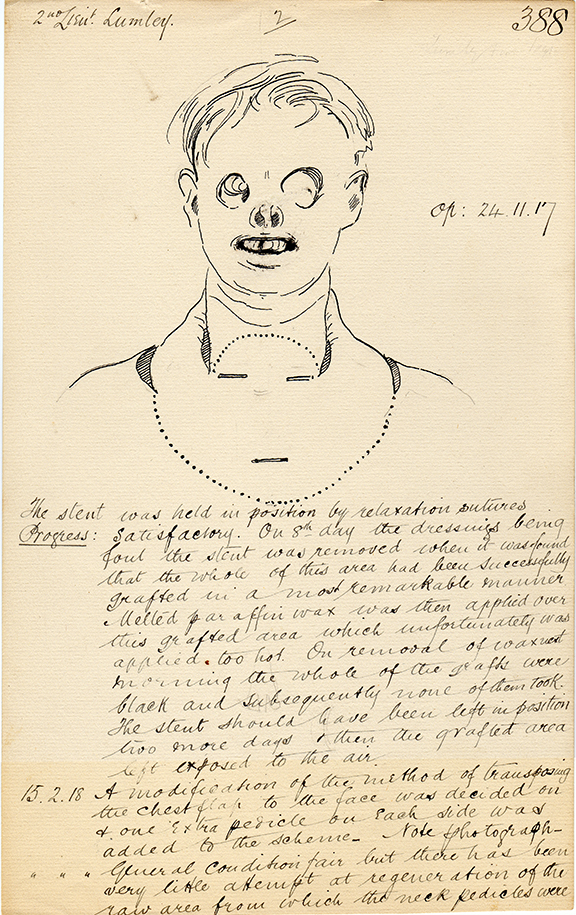 2nd Lieut. Lumley.
2
388
Op: 24.11.17
The stent was held in position by relaxation sutures
Progress: Satisfactory. On 8th day the dressings being
foul the stent was removed when it was found
that the whole of this area had been successfully
grafted in a most remarkable manner
Melted paraffin wax was then applied over
this grafted area which unfortunately was
applied too hot. On removal of wax next
morning the whole of the grafts were
black and subsequently none of them took.
The stent should have been left in position
two more days & then the grafted area
left exposed to the air.
15.2.18 A modification of the method of transposing
the chest flap to the face was decided on
& one Extra pedicle on Each side was
added to the scheme. Note photograph.
" " " General Condition fair but there has been
very little attempt at regeneration of the
raw area from which the neck pedicles were